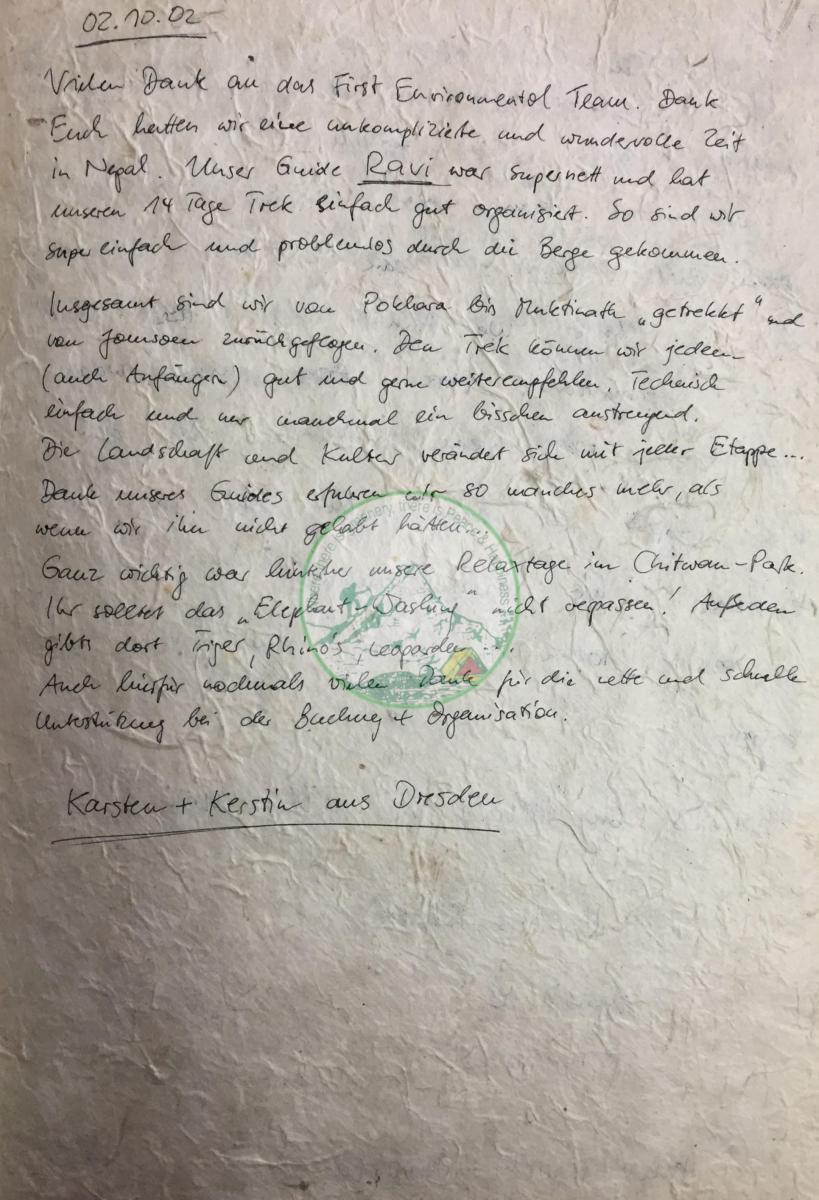 02.10.02
Vielen Dank an das First Environmental Team. Dank
Euch hatten wir eine unkomplizierte und wundervolle Zeit
in Nepal. Unser Guide Ravi war supernett und hat
unseren 14 Tage Trek einfach gut organisiert. So sind wir
super einfach und problemlos durch die Berge gekommen.
Insgesamt sind wir von Pokhara bis Muktinath „getrekkt“ und
von Jomsom zurückgeflogen. Den Trek können wir jedem
(auch Anfängern) gut und gerne weiterempfehlen. Technisch
einfach und nur manchmal ein bisschen anstrengend.
Die Landschaft und Kultur verändert sich mit jeder Etappe...
Dank unseres Guides erfuhren wir so manches mehr, als
wenn wir ihn nicht gehabt hätten...
Ganz wichtig war hinterher unsere Relaxtage im Chitwan-Park.
Ihr solltet das „Elephant-Washing“ nicht verpassen! Außerdem
gibts dort Tiger, Rhino's, Leoparden ...
Auch hierfür nochmals vielen Dank für die nette und schnelle
Unterstützung bei der Buchung + Organisation.
Karsten + Kerstin aus Dresden
there is Peace & Happiness